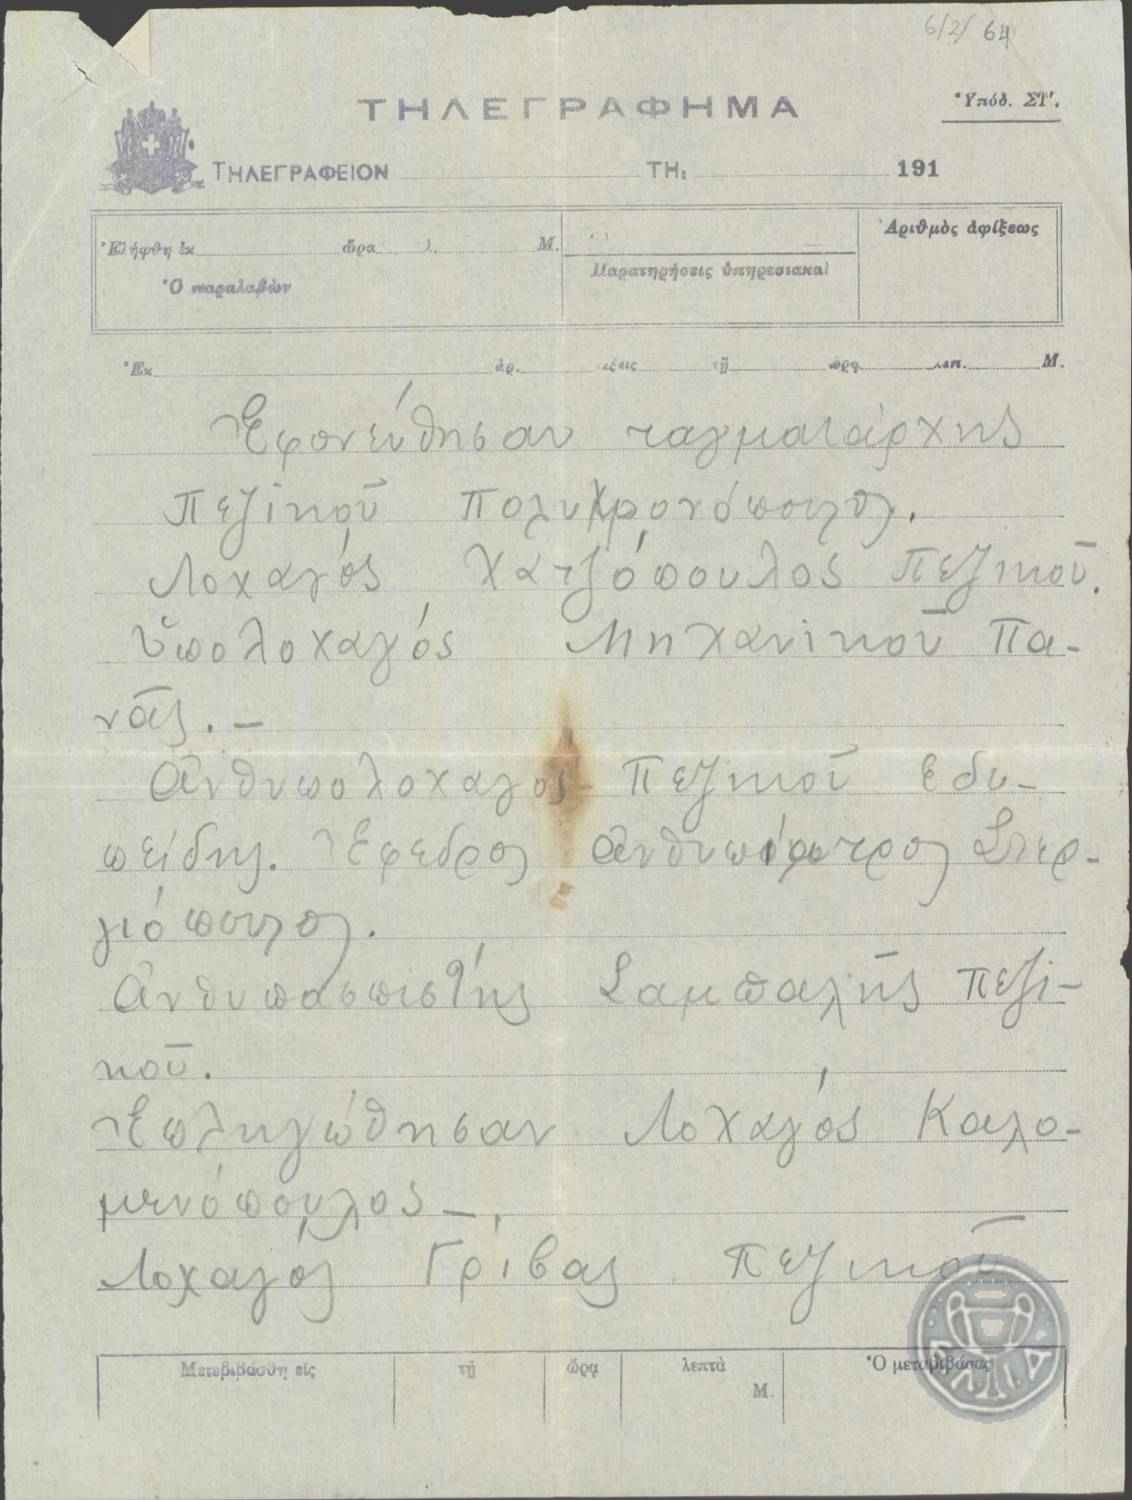 6/2/64
ΤΗΛΕΓΡΑΦΗΜΑ
Ὑπόδ. ΣΤ'.
ΤΗΛΕΓΡΑΦΕΙΟΝ ΤΗι 191
Ἐλήφθη ἐκ ὥρα Μ.
Ὁ παραλαβὼν
Παρατηρήσεις ὑπηρεσιακαὶ
Ἀριθμὸς ἀφίξεως
Ἐκ ἀρ. λέξεις τῇ ὥρᾳ λεπ. Μ.
Ἐφονεύθησαν ταγματάρχης
Πεζικοῦ Πολυχρονόπουλος.
Λοχαγός Χατζόπουλος Πεζικοῦ.
ὑπολοχαγός Μηχανικοῦ Πα-
νᾶς. –
Ἀνθυπολοχαγος Πεζικοῦ
Ἔφεδρος Στερ-
γιόπουλος.
Ἀνθυπασπιστής Σαμπαλῆς πεζι-
κοῦ.
Ἐπληγώθησαν Λοχαγός Καλο-
μενόπουλος –.
Λοχαγός Γρίβας Πεζικοῦ
Μετεβιβάσθη εἰς τῇ ὥρᾳ λεπτὰ Μ. Ὁ μεταβιβάσας
ΕΛΙΑ